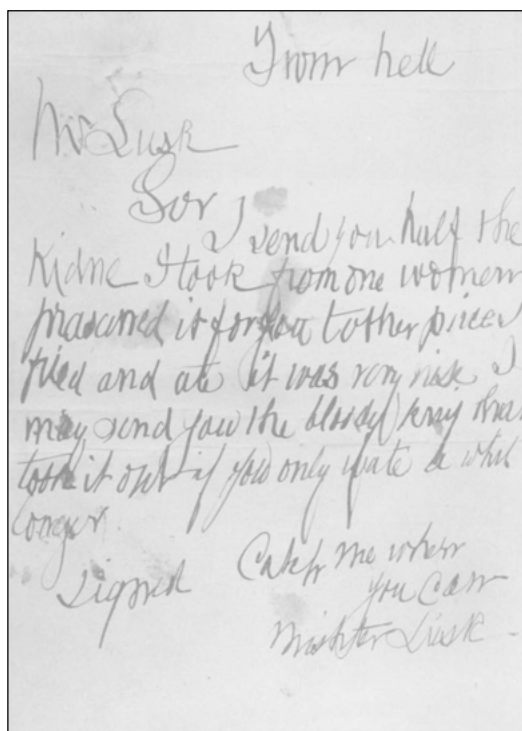 From hell
Mr Lusk
Sor
I send you half the
Kidne I took from one women
prasarved it for you tother piece I
fried and ate it was very nise I
may send you the bloody knif that
took it out if you only wate a whil
longer
signed
Catch me when
you can
Mishter Lusk